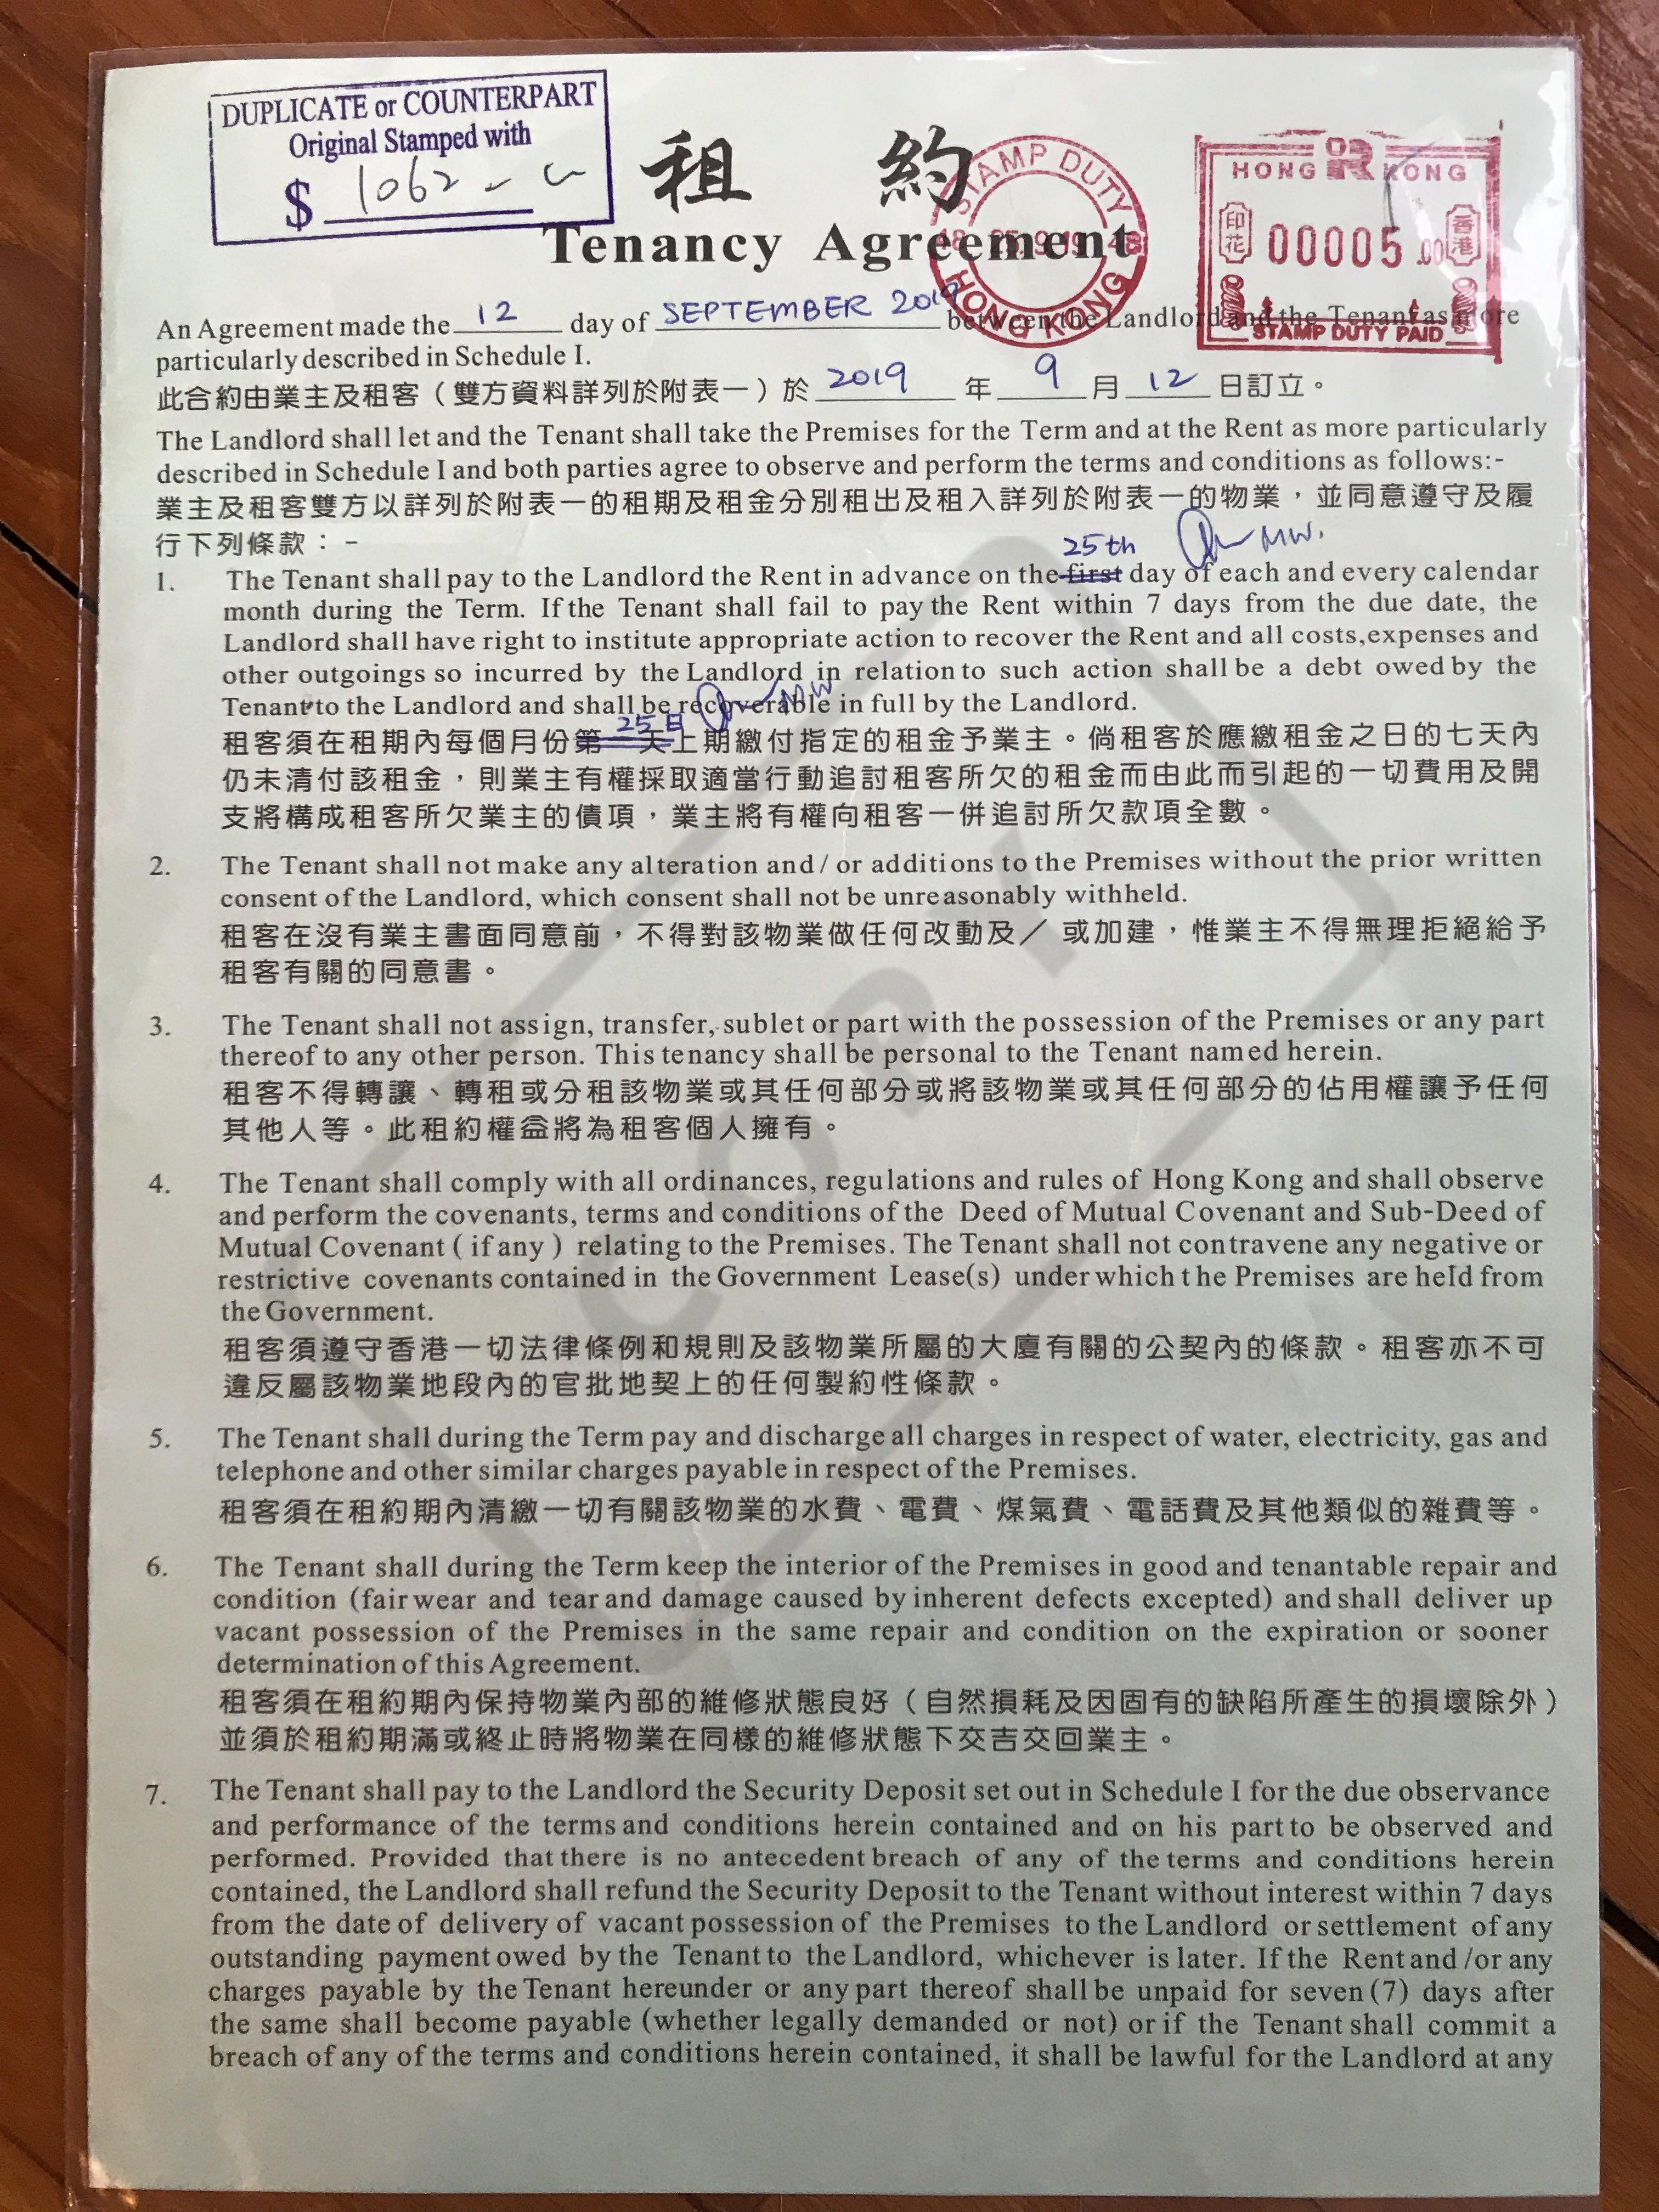 DUPLICATE or COUNTERPART
Original Stamped with
$ 1062
租 約
Tenancy Agreement
STAMP DUTY
48 25.9.19 48
HONG KONG
HONG KONG
印花 00005.00 香港
STAMP DUTY PAID
An Agreement made the 12 day of SEPTEMBER 2019 between the Landlord and the Tenant as more
particularly described in Schedule I.
此合約由業主及租客（雙方資料詳列於附表一）於 2019 年 9 月 12 日訂立。
The Landlord shall let and the Tenant shall take the Premises for the Term and at the Rent as more particularly
described in Schedule I and both parties agree to observe and perform the terms and conditions as follows:-
業主及租客雙方以詳列於附表一的租期及租金分別租出及租入詳列於附表一的物業，並同意遵守及履
行下列條款：-
25th MW.
1. The Tenant shall pay to the Landlord the Rent in advance on the first day of each and every calendar
month during the Term. If the Tenant shall fail to pay the Rent within 7 days from the due date, the
Landlord shall have right to institute appropriate action to recover the Rent and all costs,expenses and
other outgoings so incurred by the Landlord in relation to such action shall be a debt owed by the
Tenant to the Landlord and shall be recoverable in full by the Landlord.
25日 MW
租客須在租期內每個月份第一天上期繳付指定的租金予業主。倘租客於應繳租金之日的七天內
仍未清付該租金，則業主有權採取適當行動追討租客所欠的租金而由此而引起的一切費用及開
支將構成租客所欠業主的債項，業主將有權向租客一併追討所欠款項全數。
2. The Tenant shall not make any alteration and/ or additions to the Premises without the prior written
consent of the Landlord, which consent shall not be unreasonably withheld.
租客在沒有業主書面同意前，不得對該物業做任何改動及／ 或加建，惟業主不得無理拒絕給予
租客有關的同意書。
3. The Tenant shall not assign, transfer, sublet or part with the possession of the Premises or any part
thereof to any other person. This tenancy shall be personal to the Tenant named herein.
租客不得轉讓、轉租或分租該物業或其任何部分或將該物業或其任何部分的佔用權讓予任何
其他人等。此租約權益將為租客個人擁有。
4. The Tenant shall comply with all ordinances, regulations and rules of Hong Kong and shall observe
and perform the covenants, terms and conditions of the Deed of Mutual Covenant and Sub-Deed of
Mutual Covenant ( if any ) relating to the Premises. The Tenant shall not contravene any negative or
restrictive covenants contained in the Government Lease(s) under which the Premises are held from
the Government.
租客須遵守香港一切法律條例和規則及該物業所屬的大廈有關的公契內的條款。租客亦不可
違反屬該物業地段內的官批地契上的任何製約性條款。
5. The Tenant shall during the Term pay and discharge all charges in respect of water, electricity, gas and
telephone and other similar charges payable in respect of the Premises.
租客須在租約期內清繳一切有關該物業的水費、電費、煤氣費、電話費及其他類似的雜費等。
6. The Tenant shall during the Term keep the interior of the Premises in good and tenantable repair and
condition (fair wear and tear and damage caused by inherent defects excepted) and shall deliver up
vacant possession of the Premises in the same repair and condition on the expiration or sooner
determination of this Agreement.
租客須在租約期內保持物業內部的維修狀態良好（自然損耗及因固有的缺陷所產生的損壞除外）
並須於租約期滿或終止時將物業在同樣的維修狀態下交吉交回業主。
7. The Tenant shall pay to the Landlord the Security Deposit set out in Schedule I for the due observance
and performance of the terms and conditions herein contained and on his part to be observed and
performed. Provided that there is no antecedent breach of any of the terms and conditions herein
contained, the Landlord shall refund the Security Deposit to the Tenant without interest within 7 days
from the date of delivery of vacant possession of the Premises to the Landlord or settlement of any
outstanding payment owed by the Tenant to the Landlord, whichever is later. If the Rent and /or any
charges payable by the Tenant hereunder or any part thereof shall be unpaid for seven (7) days after
the same shall become payable (whether legally demanded or not) or if the Tenant shall commit a
breach of any of the terms and conditions herein contained, it shall be lawful for the Landlord at any
COPY